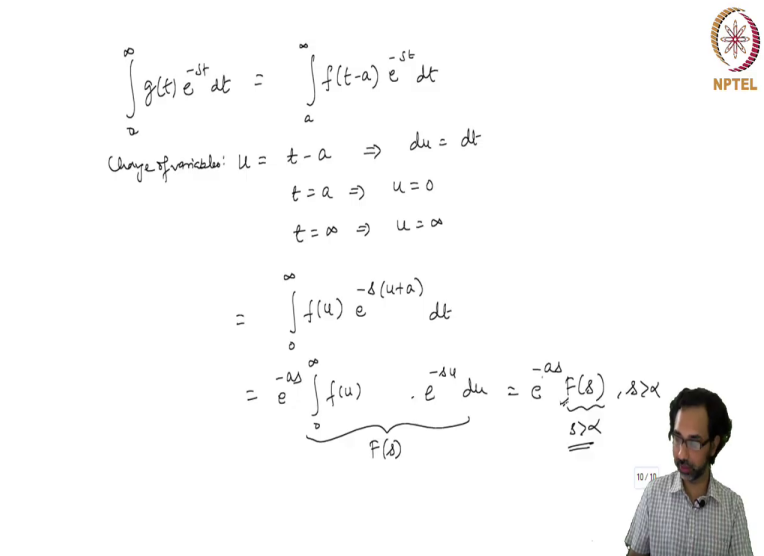 NPTEL
∫_a^∞ g(t) e^{-st} dt = ∫_a^∞ f(t-a) e^{-st} dt
Change of variables: u = t - a ⇒ du = dt
t = a ⇒ u = 0
t = ∞ ⇒ u = ∞
= ∫_0^∞ f(u) e^{-s(u+a)} dt
= e^{-as} ∫_0^∞ f(u) . e^{-su} du = e^{-as} F(s), s>α
F(s)
s>α
10 / 10